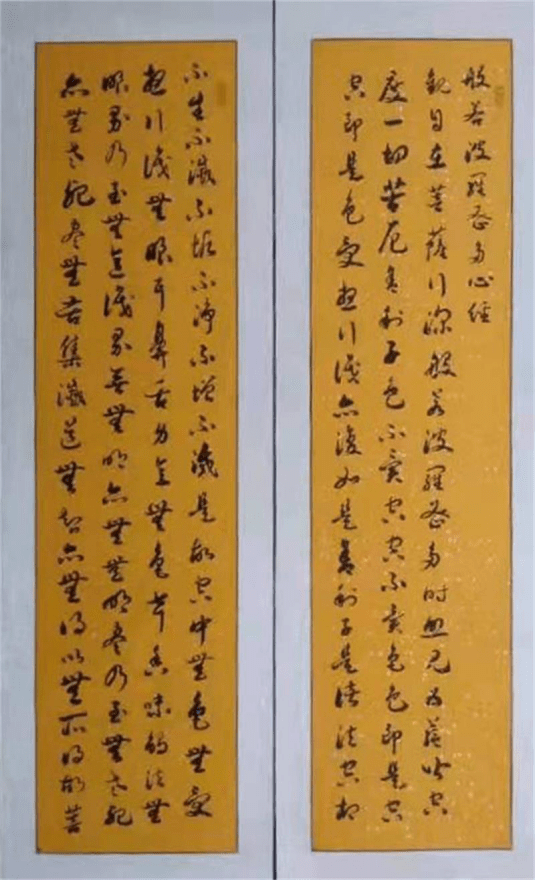 般若波羅蜜多心經
觀自在菩薩行深般若波羅蜜多時照見五蘊皆空
度一切苦厄舍利子色不異空空不異色色即是空
空即是色受想行識亦復如是舍利子是諸法空相
不生不滅不垢不淨不增不減是故空中無色無受
想行識無眼耳鼻舌身意無色聲香味觸法無
眼界乃至無意識界無無明亦無無明盡乃至無老死
亦無老死盡無苦集滅道無智亦無得以無所得故菩